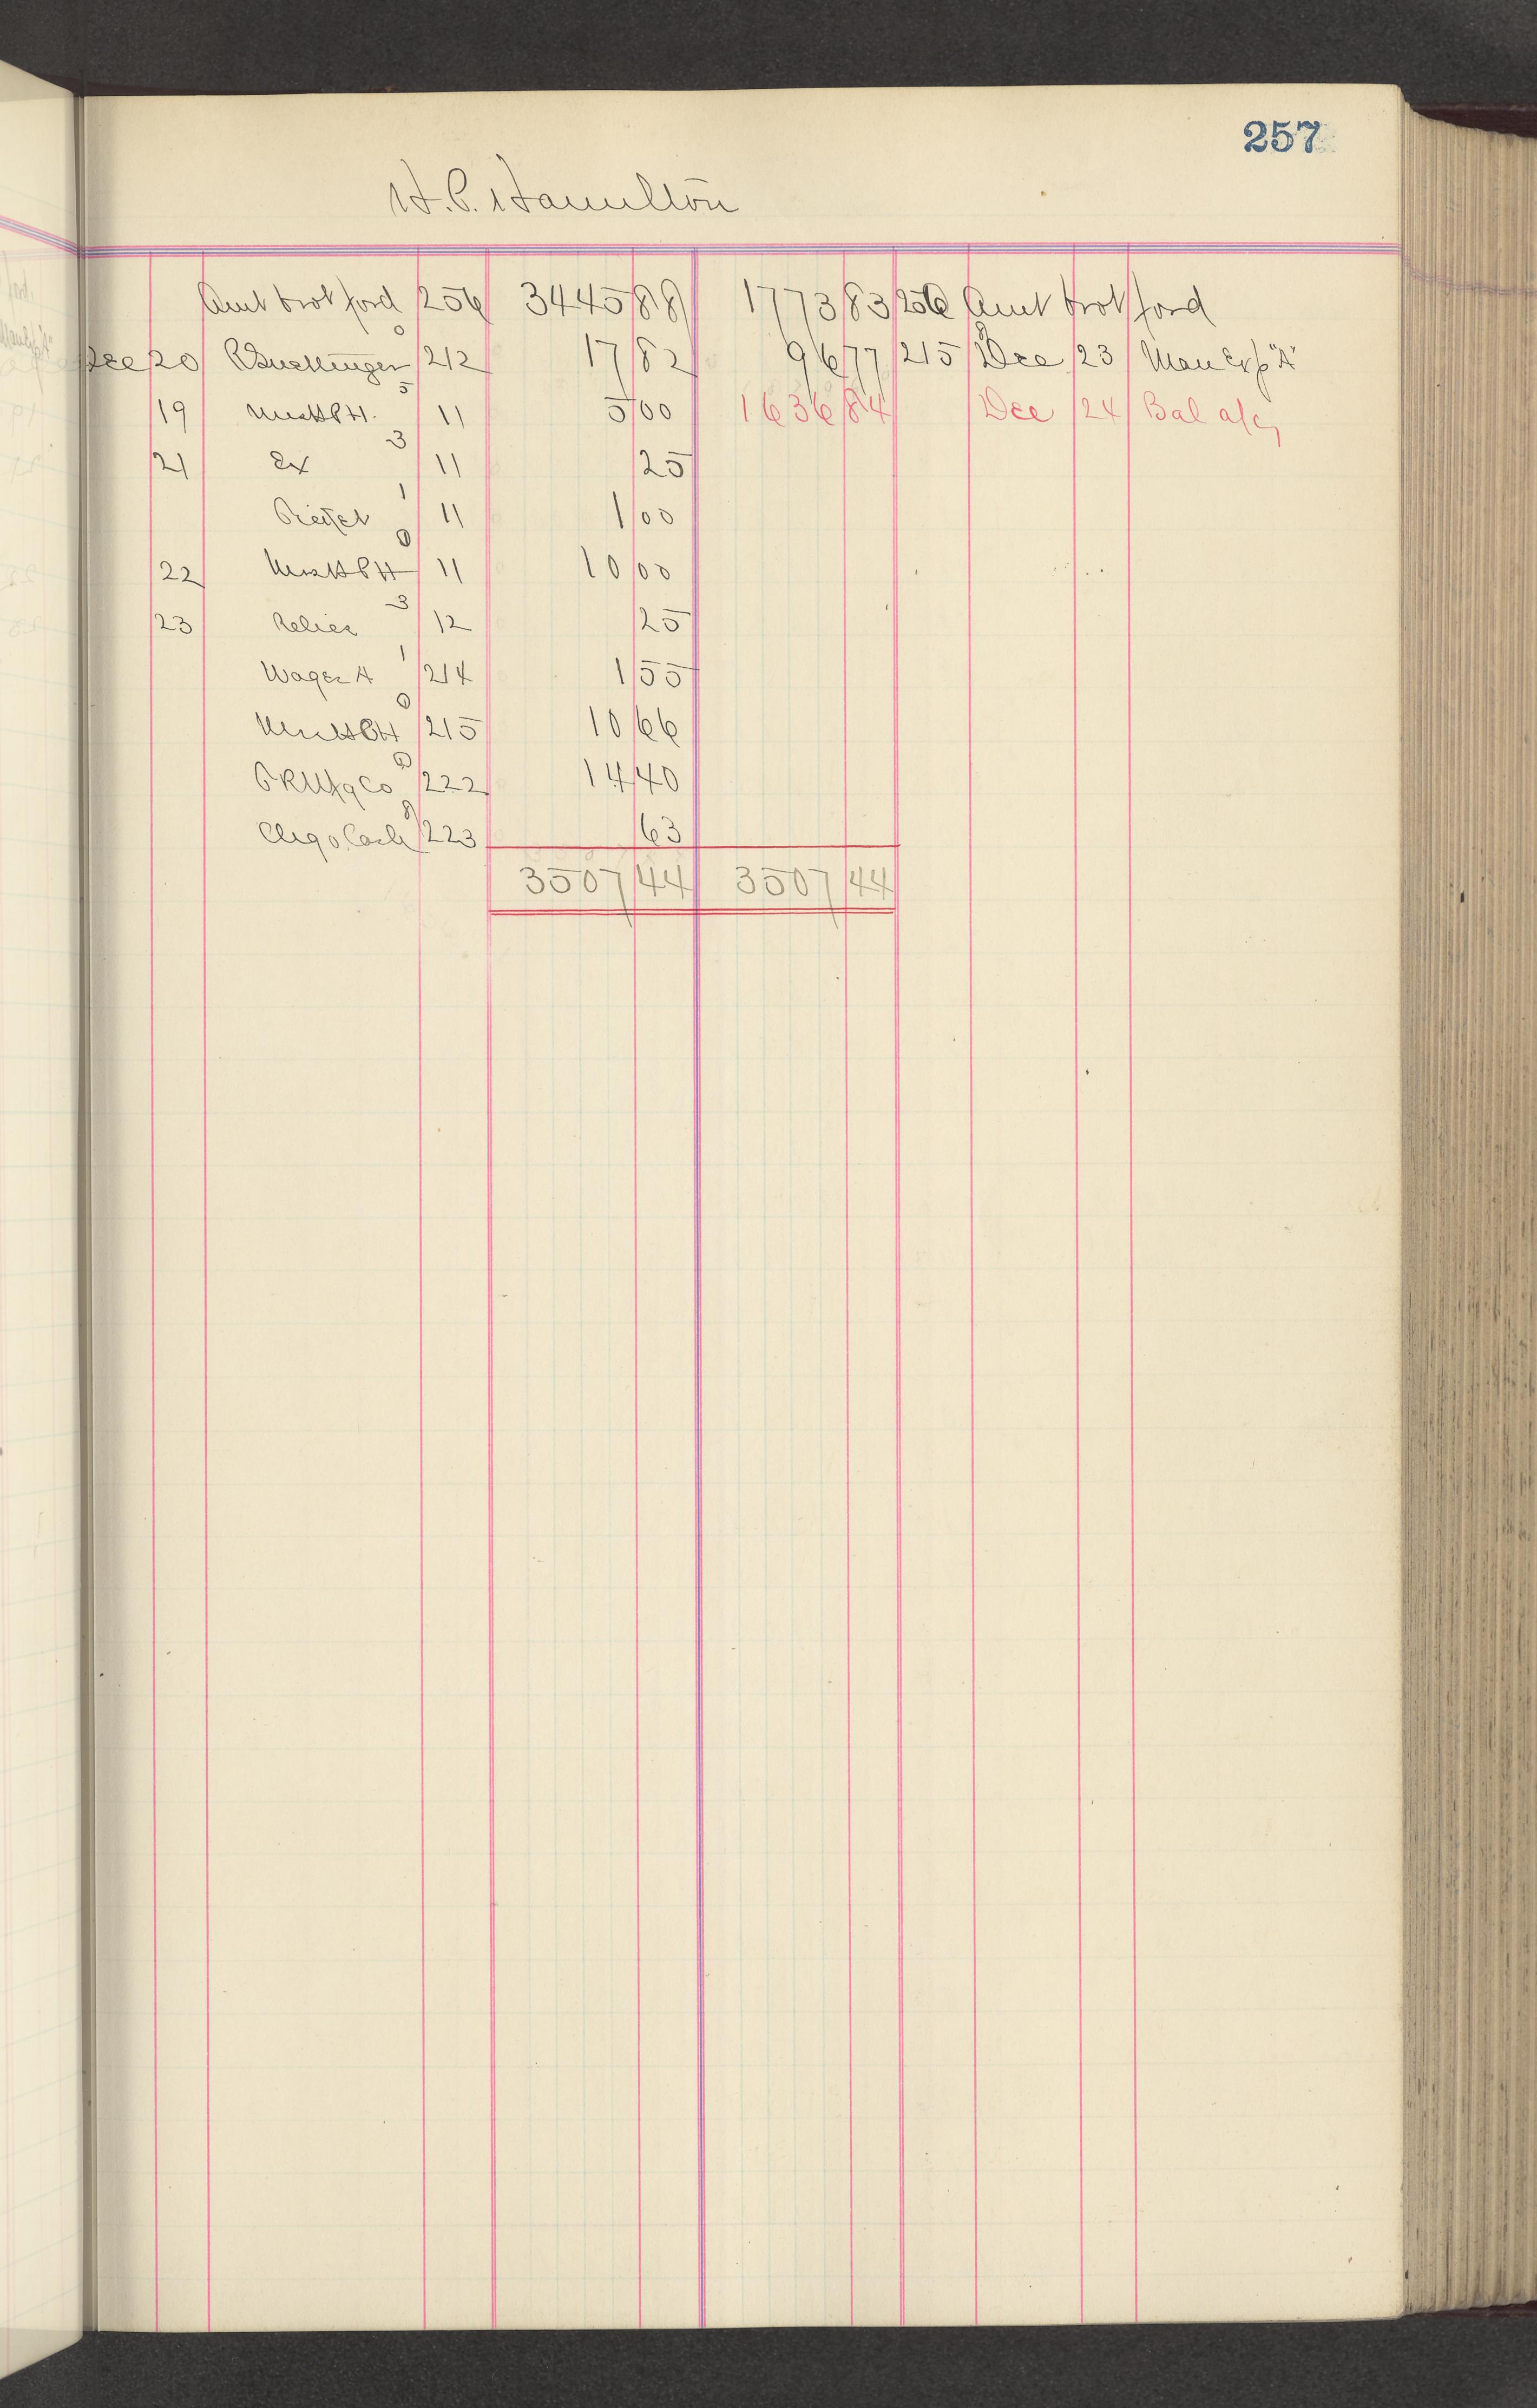 257
H.P. Hamilton
Amt brot ford 256 3445 88 1773 83 256 Amt brot ford
Dec 20 212 17 82 96 77 215 Dec 23 Man Exp "A"
19 11 5 00 1636 84 Dec 24 Bal a/c
21 Ex 11 25
11 1 00
22 11 10 00
23 12 25
Wages A 214 1 55
215 10 66
P R Mfg Co 222 14 40
Cash 223 63
3507 44 3507 44